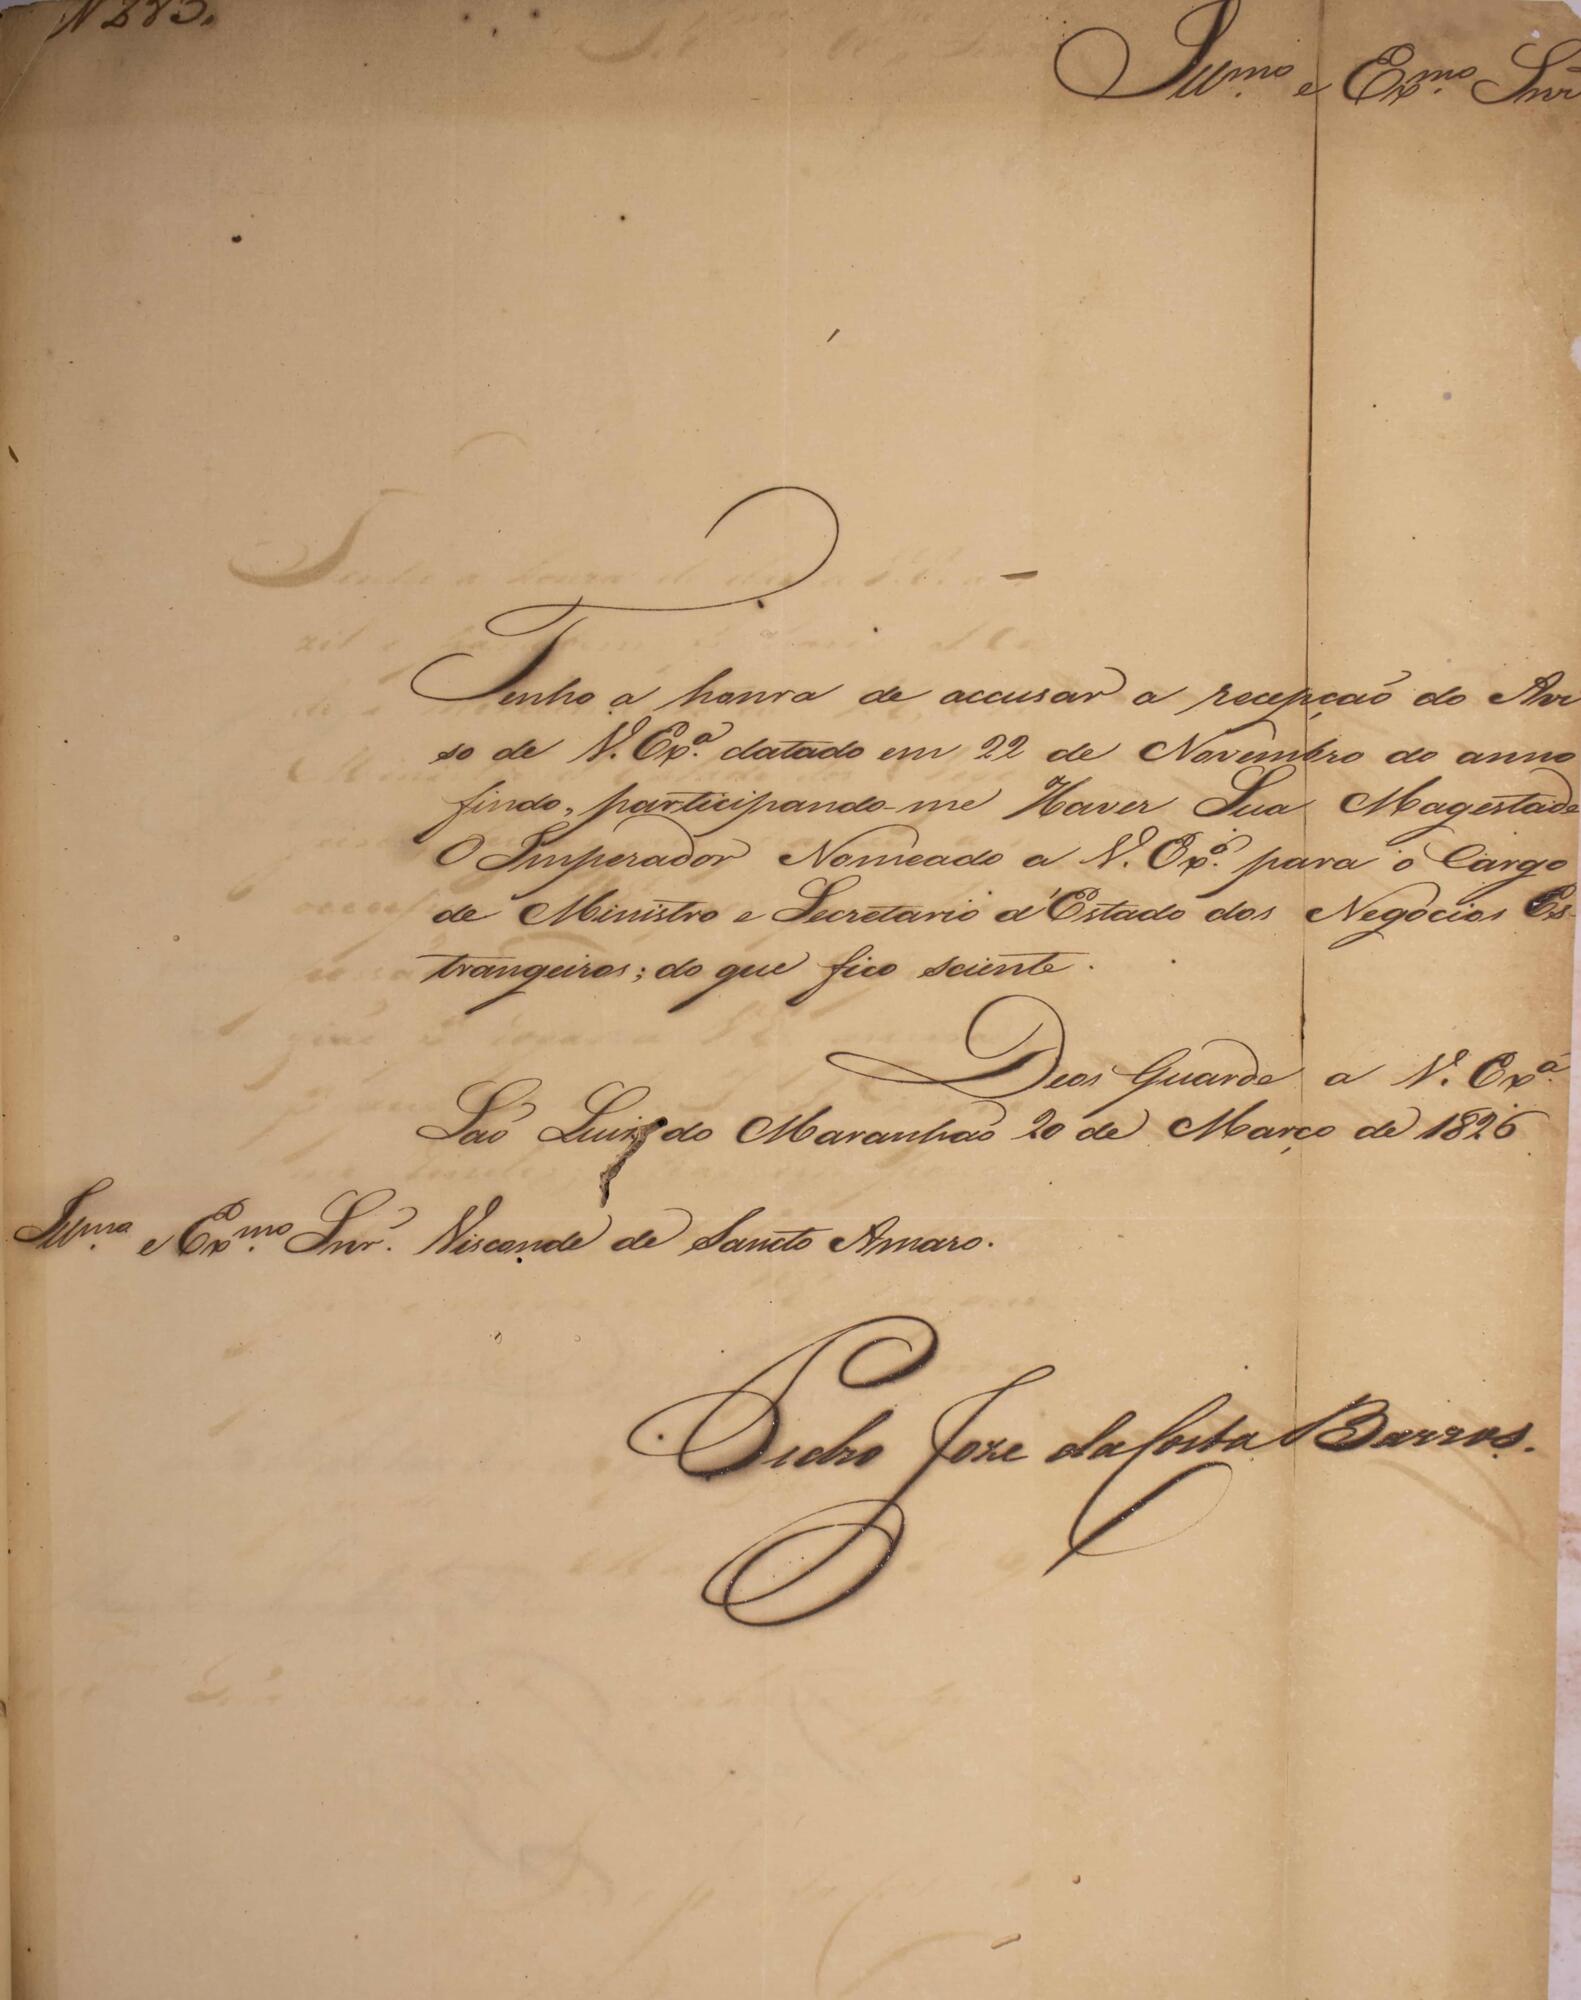 Illmo. e Exmo. Snr
Tenho a honra de accusar a recepçaõ do Avi
so de V. Exa. datado em 22 de Novembro do anno
findo, participando-me Haver Sua Magestade
O Imperador Nomeado a V. Exa. para o Cargo
de Ministro e Secretario d'Estado dos Negocios Es-
trangeiros; do que fico sciente.
Deos Guarde a V. Exa.
Saõ Luiz do Maranhaõ 20 de Março de 1826
Illmo. e Exmo. Snr. Visconde de Sancto Amaro.
Pedro Joze da Costa Barros.